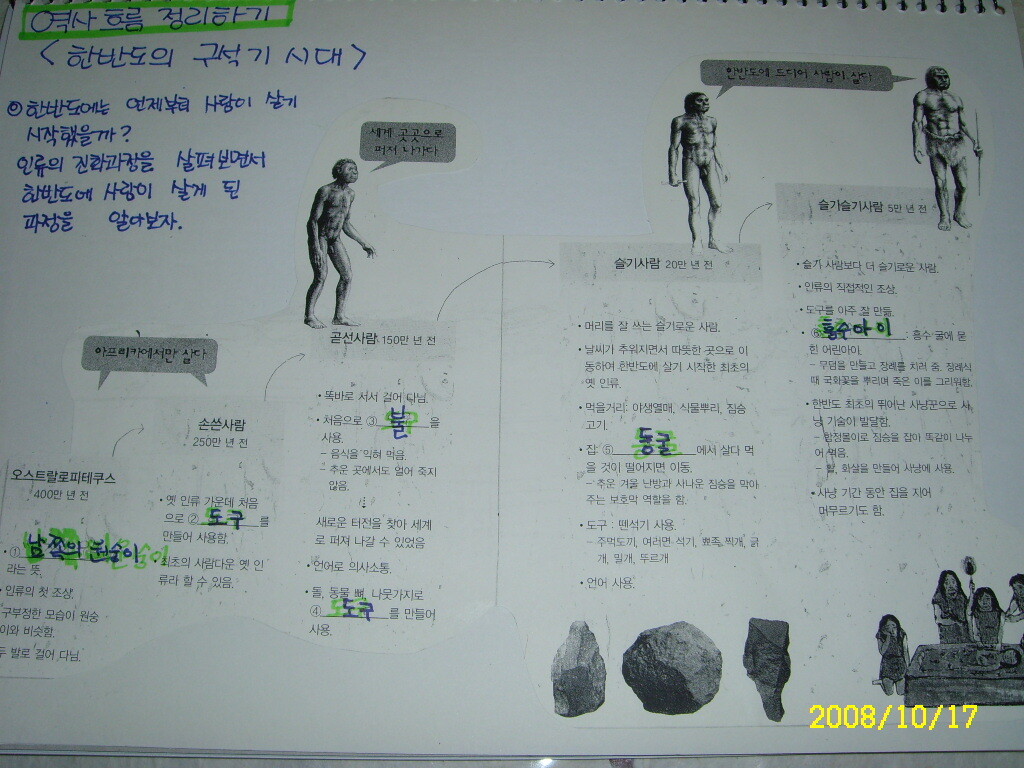 역사 흐름 정리하기
< 한반도의 구석기 시대 >
◎ 한반도에는 언제부터 사람이 살기
시작했을까?
인류의 진화과정을 살펴보면서
한반도에 사람이 살게 된
과정을 알아보자.
아프리카에서만 살다
오스트랄로피테쿠스
400만 년 전
① 남쪽의 원숭이
라는 뜻.
• 인류의 첫 조상.
구부정한 모습이 원숭
이와 비슷함.
두 발로 걸어 다님.
손쓴사람
250만 년 전
• 옛 인류 가운데 처음
으로 ② 도구 를
만들어 사용함.
최초의 사람다운 옛 인
류라 할 수 있음.
세계 곳곳으로
퍼져 나가다
곧선사람 150만 년 전
• 똑바로 서서 걸어 다님.
• 처음으로 ③ 불 을
사용.
– 음식을 익혀 먹음.
– 추운 곳에서도 얼어 죽지
않음.
새로운 터전을 찾아 세계
로 퍼져 나갈 수 있었음
• 언어로 의사소통.
• 돌, 동물 뼈, 나뭇가지로
④ 도구 를 만들어
사용.
한반도에 드디어 사람이 살다
슬기사람 20만 년 전
• 머리를 잘 쓰는 슬기로운 사람.
• 날씨가 추워지면서 따뜻한 곳으로 이
동하며 한반도에 살기 시작한 최초의
옛 인류.
• 먹을거리: 야생열매, 식물뿌리, 짐승
고기.
• 집: ⑤ 동굴 에서 살다 먹
을 것이 떨어지면 이동.
– 추운 겨울 난방과 사나운 짐승을 막아
주는 보호막 역할을 함.
• 도구 : 뗀석기 사용.
– 주먹도끼, 여러면 석기, 뾰족 찍개, 긁
개, 밀개, 뚜르개
• 언어 사용.
슬기슬기사람 5만 년 전
• 슬기 사람보다 더 슬기로운 사람.
• 인류의 직접적인 조상.
• 도구를 아주 잘 만듦.
⑥ 흥수아이 : 흥수 굴에 묻
힌 어린아이.
– 무덤을 만들고 장례를 치러 줌. 장례식
때 국화꽃을 뿌리며 죽은 이를 그리워함.
• 한반도 최초의 뛰어난 사냥꾼으로 사
냥 기술이 발달함.
– 함정몰이로 짐승을 잡아 똑같이 나누
어 먹음.
– 활, 화살을 만들어 사냥에 사용.
• 사냥 기간 동안 집을 지어
머무르기도 함.
2008/10/17